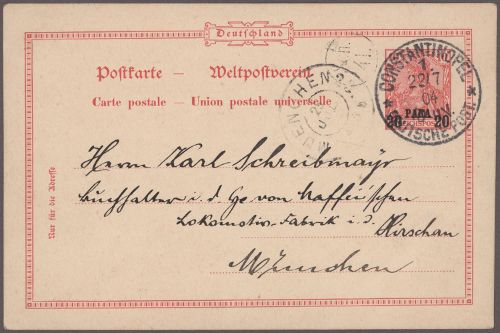 Deutschland
Postkarte – Weltpostverein
Carte postale – Union postale universelle
CONSTANTINOPEL
1
22/7
04
DEUTSCHE POST
20 PARA 20
REICHSPOST
MUENCHEN
Nur für die Adresse
Herrn Karl Schreibmayr
Buchhalter i. d. Ge von Maffei'schen
Lokomotiv-Fabrik i. d. Hirschau
München